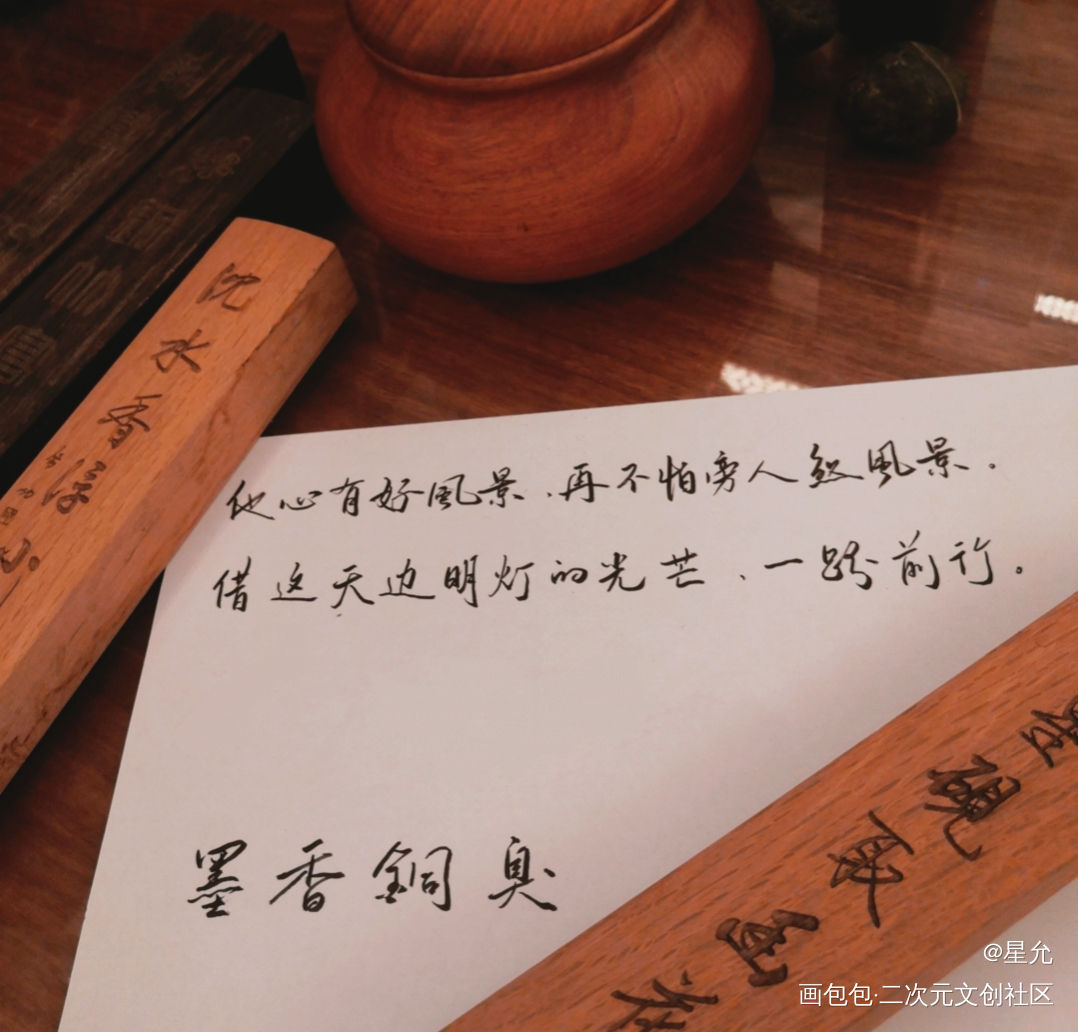 沈水香浮
他心有好風景、再不怕旁人煞風景.
借这天边明灯的光芒、一路前行。
墨香銅臭
硯
@星允
画包包·二次元文创社区